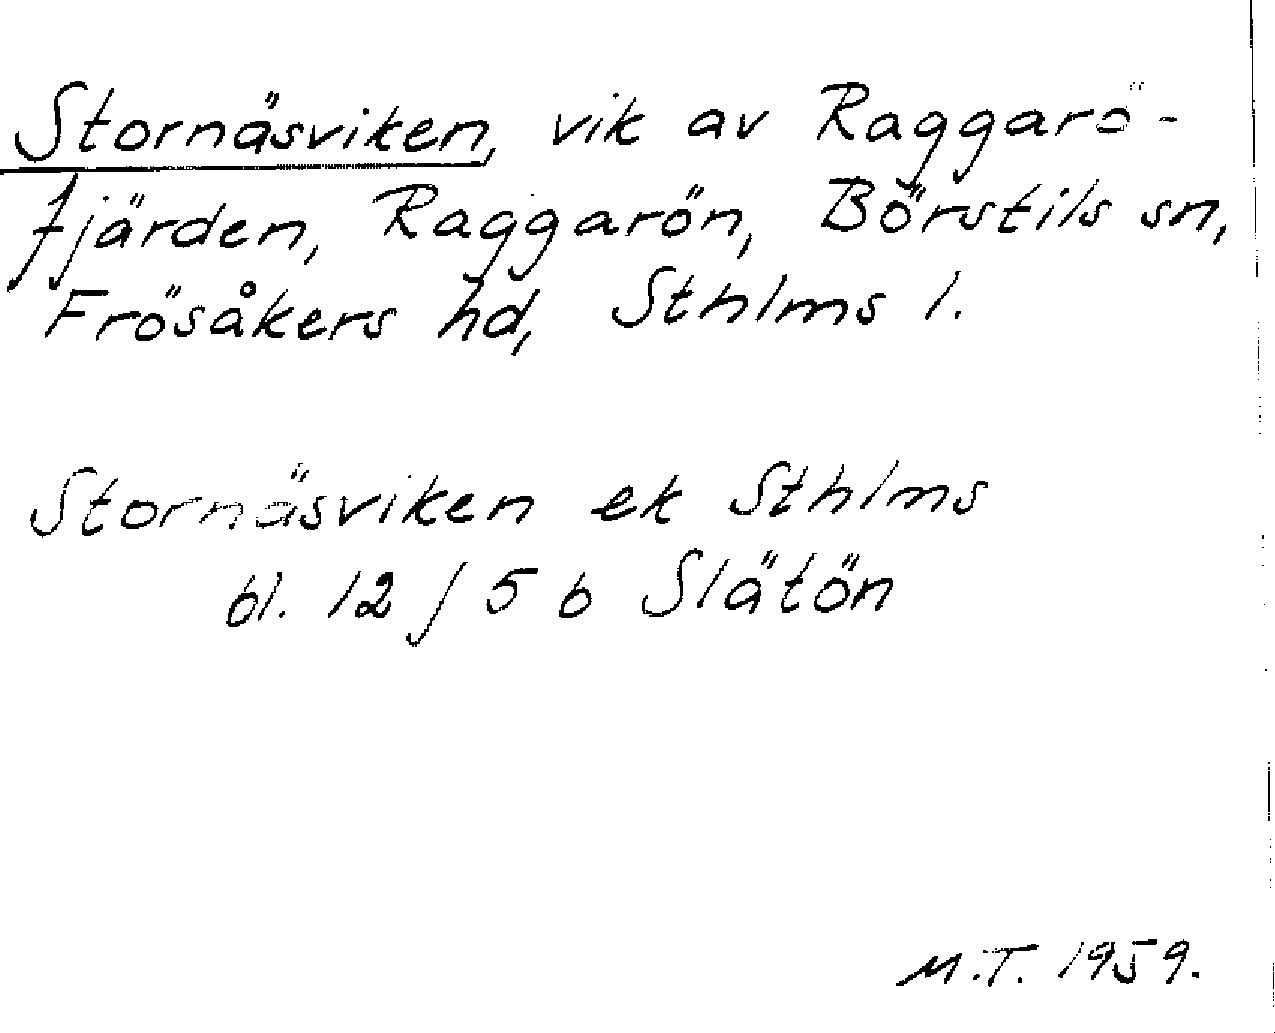 Stornäsviken, vik av Raggarö-
fjärden, Raggarön, Börstils sn,
Frösåkers hd, Sthlms l.
Stornäsviken ek Sthlms
bl. 12 J 5 b Slätön
M.T. 1959.